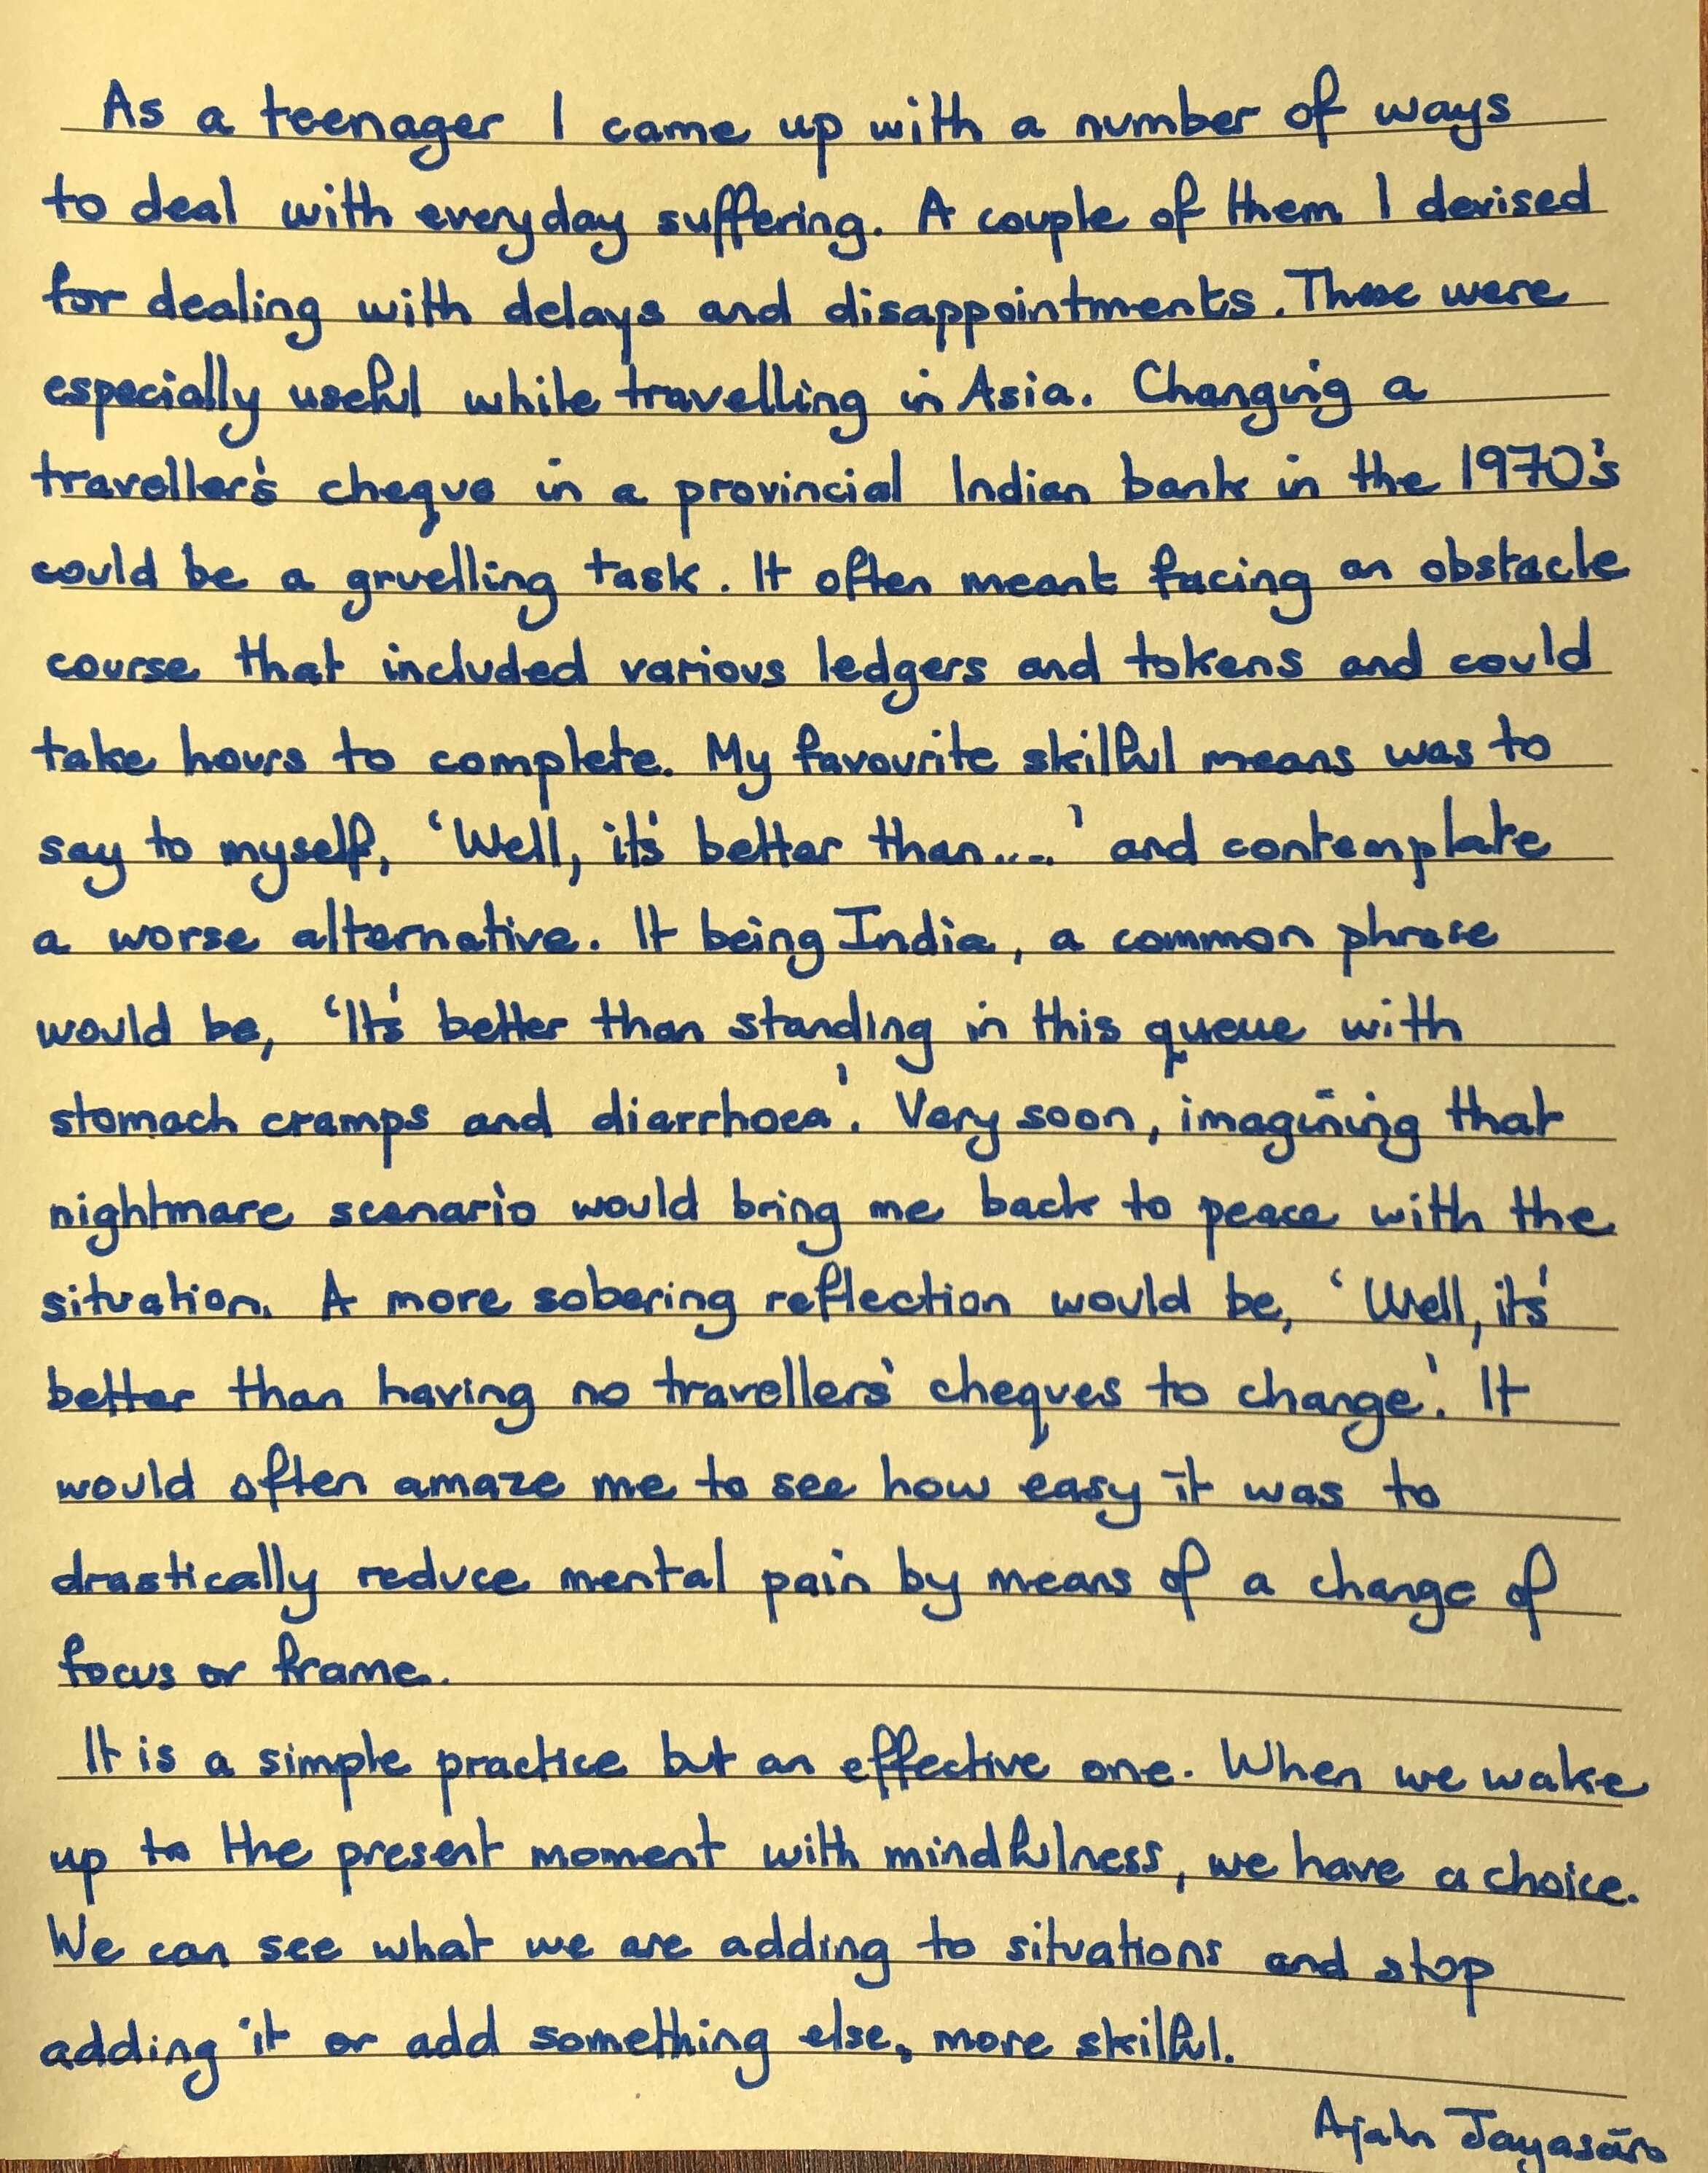 As a teenager I came up with a number of ways
to deal with everyday suffering. A couple of them I devised
for dealing with delays and disappointments. These were
especially useful while travelling in Asia. Changing a
traveller's cheque in a provincial Indian bank in the 1970's
could be a gruelling task. It often meant facing an obstacle
course that included various ledgers and tokens and could
take hours to complete. My favourite skilful means was to
say to myself, ‘Well, it's better than....’ and contemplate
a worse alternative. It being India, a common phrase
would be, ‘It's better than standing in this queue with
stomach cramps and diarrhoea’. Very soon, imagining that
nightmare scenario would bring me back to peace with the
situation. A more sobering reflection would be, ‘Well, it's
better than having no travellers' cheques to change’. It
would often amaze me to see how easy it was to
drastically reduce mental pain by means of a change of
focus or frame.
It is a simple practice but an effective one. When we wake
up to the present moment with mindfulness, we have a choice.
We can see what we are adding to situations and stop
adding it or add something else, more skilful.
Ajahn Jayasāro